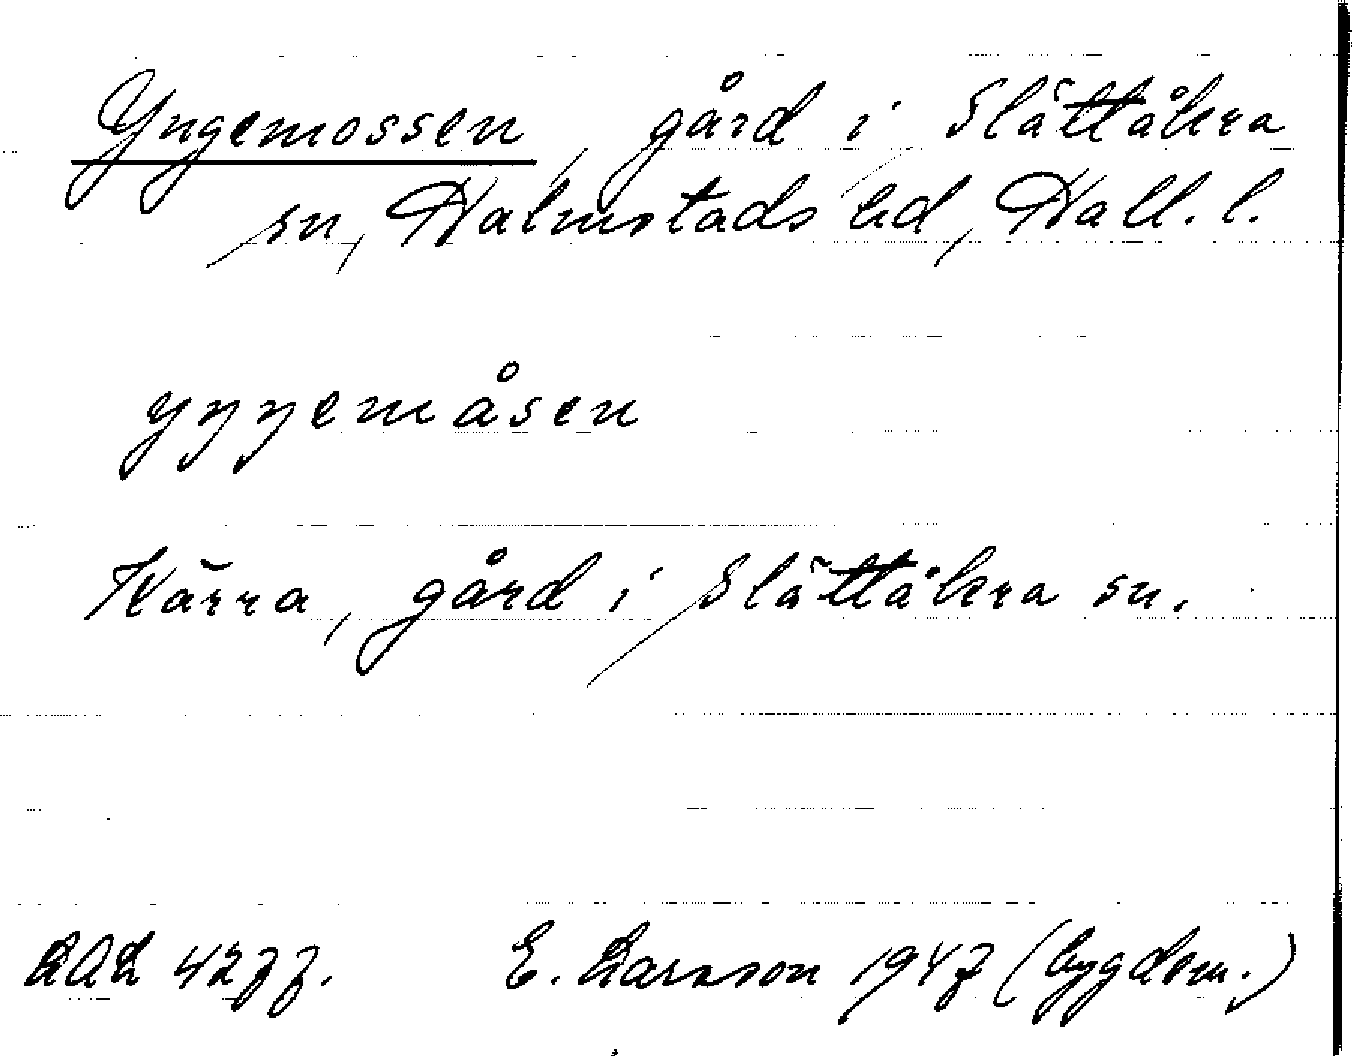 Yngemossen, gård i Slättåkra
sn, Halmstads hd, Hall. l.
yŋŋemåsen
Kärra, gård i Slättåkra sn.
LAL 4277. E. Larsson 1947 (bygdem.)